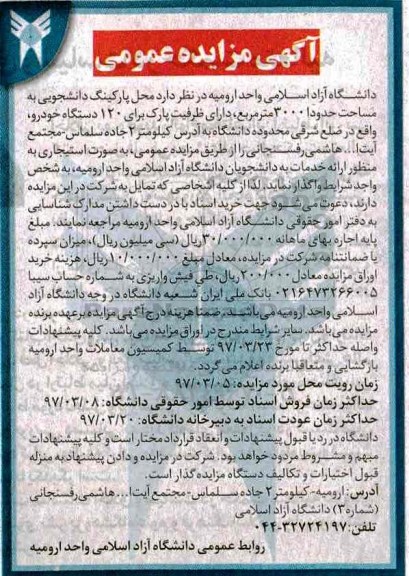 آگهی مزایده عمومی
دانشگاه آزاد اسلامی واحد ارومیه در نظر دارد محل پارکینگ دانشجویی به
مساحت حدودا ۳۰۰۰ مترمربع، دارای ظرفیت پارک برای ۱۲۰ دستگاه خودرو،
واقع در ضلع شرقی محدوده دانشگاه به آدرس کیلومتر ۲ جاده سلماس-مجتمع
آیت‌ا... هاشمی رفسنجانی را از طریق مزایده عمومی، به صورت استیجاری به
منظور ارائه خدمات به دانشجویان دانشگاه آزاد اسلامی واحد ارومیه، به شخص
واجد شرایط واگذار نماید. لذا از کلیه اشخاصی که تمایل به شرکت در این مزایده
دارند، دعوت می‌شود جهت خرید اسناد با در دست داشتن مدارک شناسایی
به دفتر امور حقوقی دانشگاه آزاد اسلامی واحد ارومیه مراجعه نمایند. مبلغ
پایه اجاره بهای ماهانه ۳۰/۰۰۰/۰۰۰ ریال (سی میلیون ریال)، میزان سپرده
یا ضمانتنامه شرکت در مزایده، معادل مبلغ ۱۰/۰۰۰/۰۰۰ ریال، هزینه خرید
اوراق مزایده معادل ۲۰۰/۰۰۰ ریال، طی فیش واریزی به شماره حساب سیبا
۰۲۱۶۴۷۳۲۶۶۰۰۵ بانک ملی ایران شعبه دانشگاه در وجه دانشگاه آزاد
اسلامی واحد ارومیه می‌باشد. ضمنا هزینه درج آگهی مزایده بر عهده برنده
مزایده می‌باشد. سایر شرایط مندرج در اوراق مزایده می‌باشد. کلیه پیشنهادات
واصله حداکثر تا مورخ ۹۷/۰۳/۲۳ توسط کمیسیون معاملات واحد ارومیه
بازگشایی و متعاقبا برنده اعلام می‌گردد.
زمان رویت محل مورد مزایده: ۹۷/۰۳/۰۵
حداکثر زمان فروش اسناد توسط امور حقوقی دانشگاه: ۹۷/۰۳/۰۸
حداکثر زمان عودت اسناد به دبیرخانه دانشگاه: ۹۷/۰۳/۲۰
دانشگاه در رد یا قبول پیشنهادات و انعقاد قرارداد مختار است و کلیه پیشنهادات
مبهم و مشروط مردود خواهد بود. شرکت در مزایده و دادن پیشنهاد به منزله
قبول اختیارات و تکالیف دستگاه مزایده گذار است.
آدرس: ارومیه- کیلومتر ۲ جاده سلماس- مجتمع آیت‌ا... هاشمی رفسنجانی
(شماره ۳) دانشگاه آزاد اسلامی
تلفن: ۳۲۷۲۴۱۹۷-۰۴۴
روابط عمومی دانشگاه آزاد اسلامی واحد ارومیه